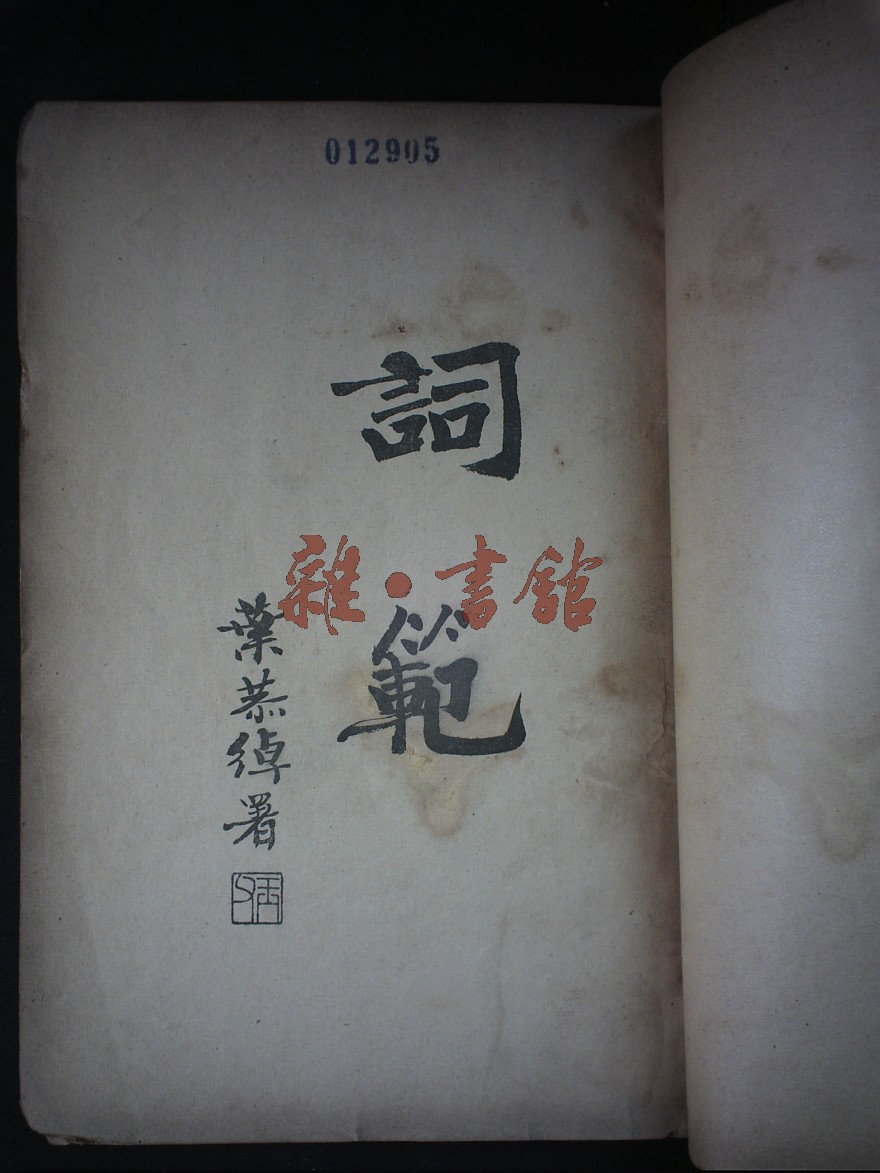 012905
詞範
雜·書館
葉恭綽署